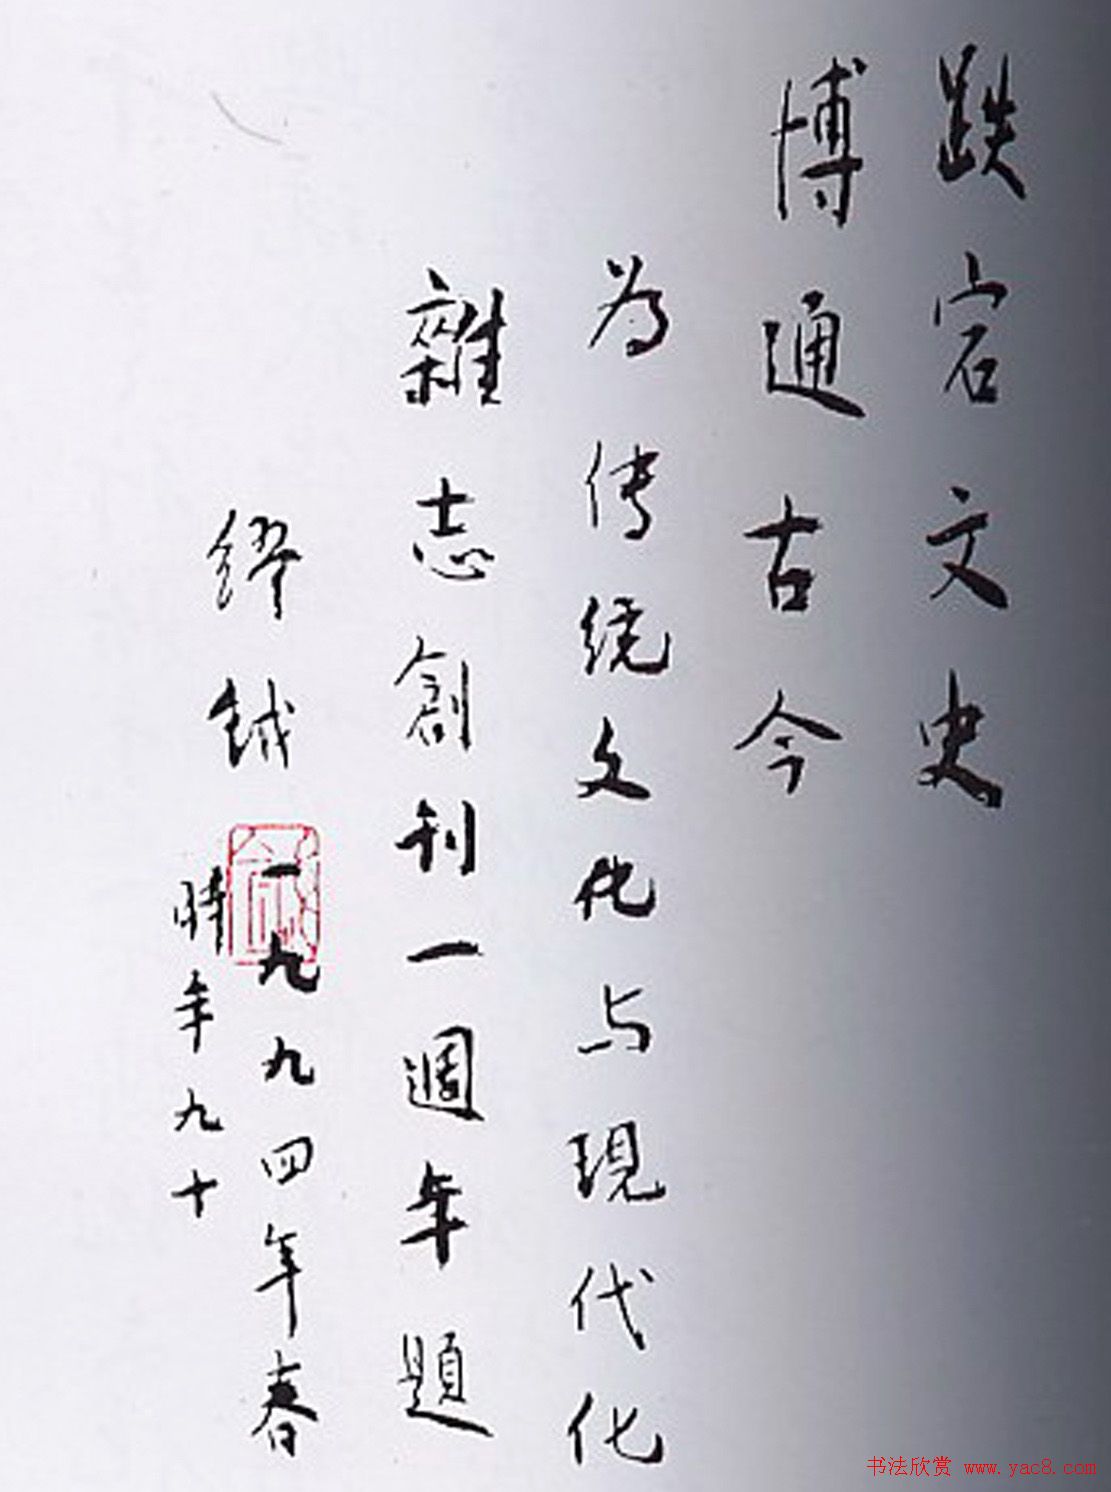 跌宕文史
博通古今
为传统文化与現代化
雜志創刊一週年題
繆鉞
一九九四年春
時年九十
书法欣赏 www.yac8.com